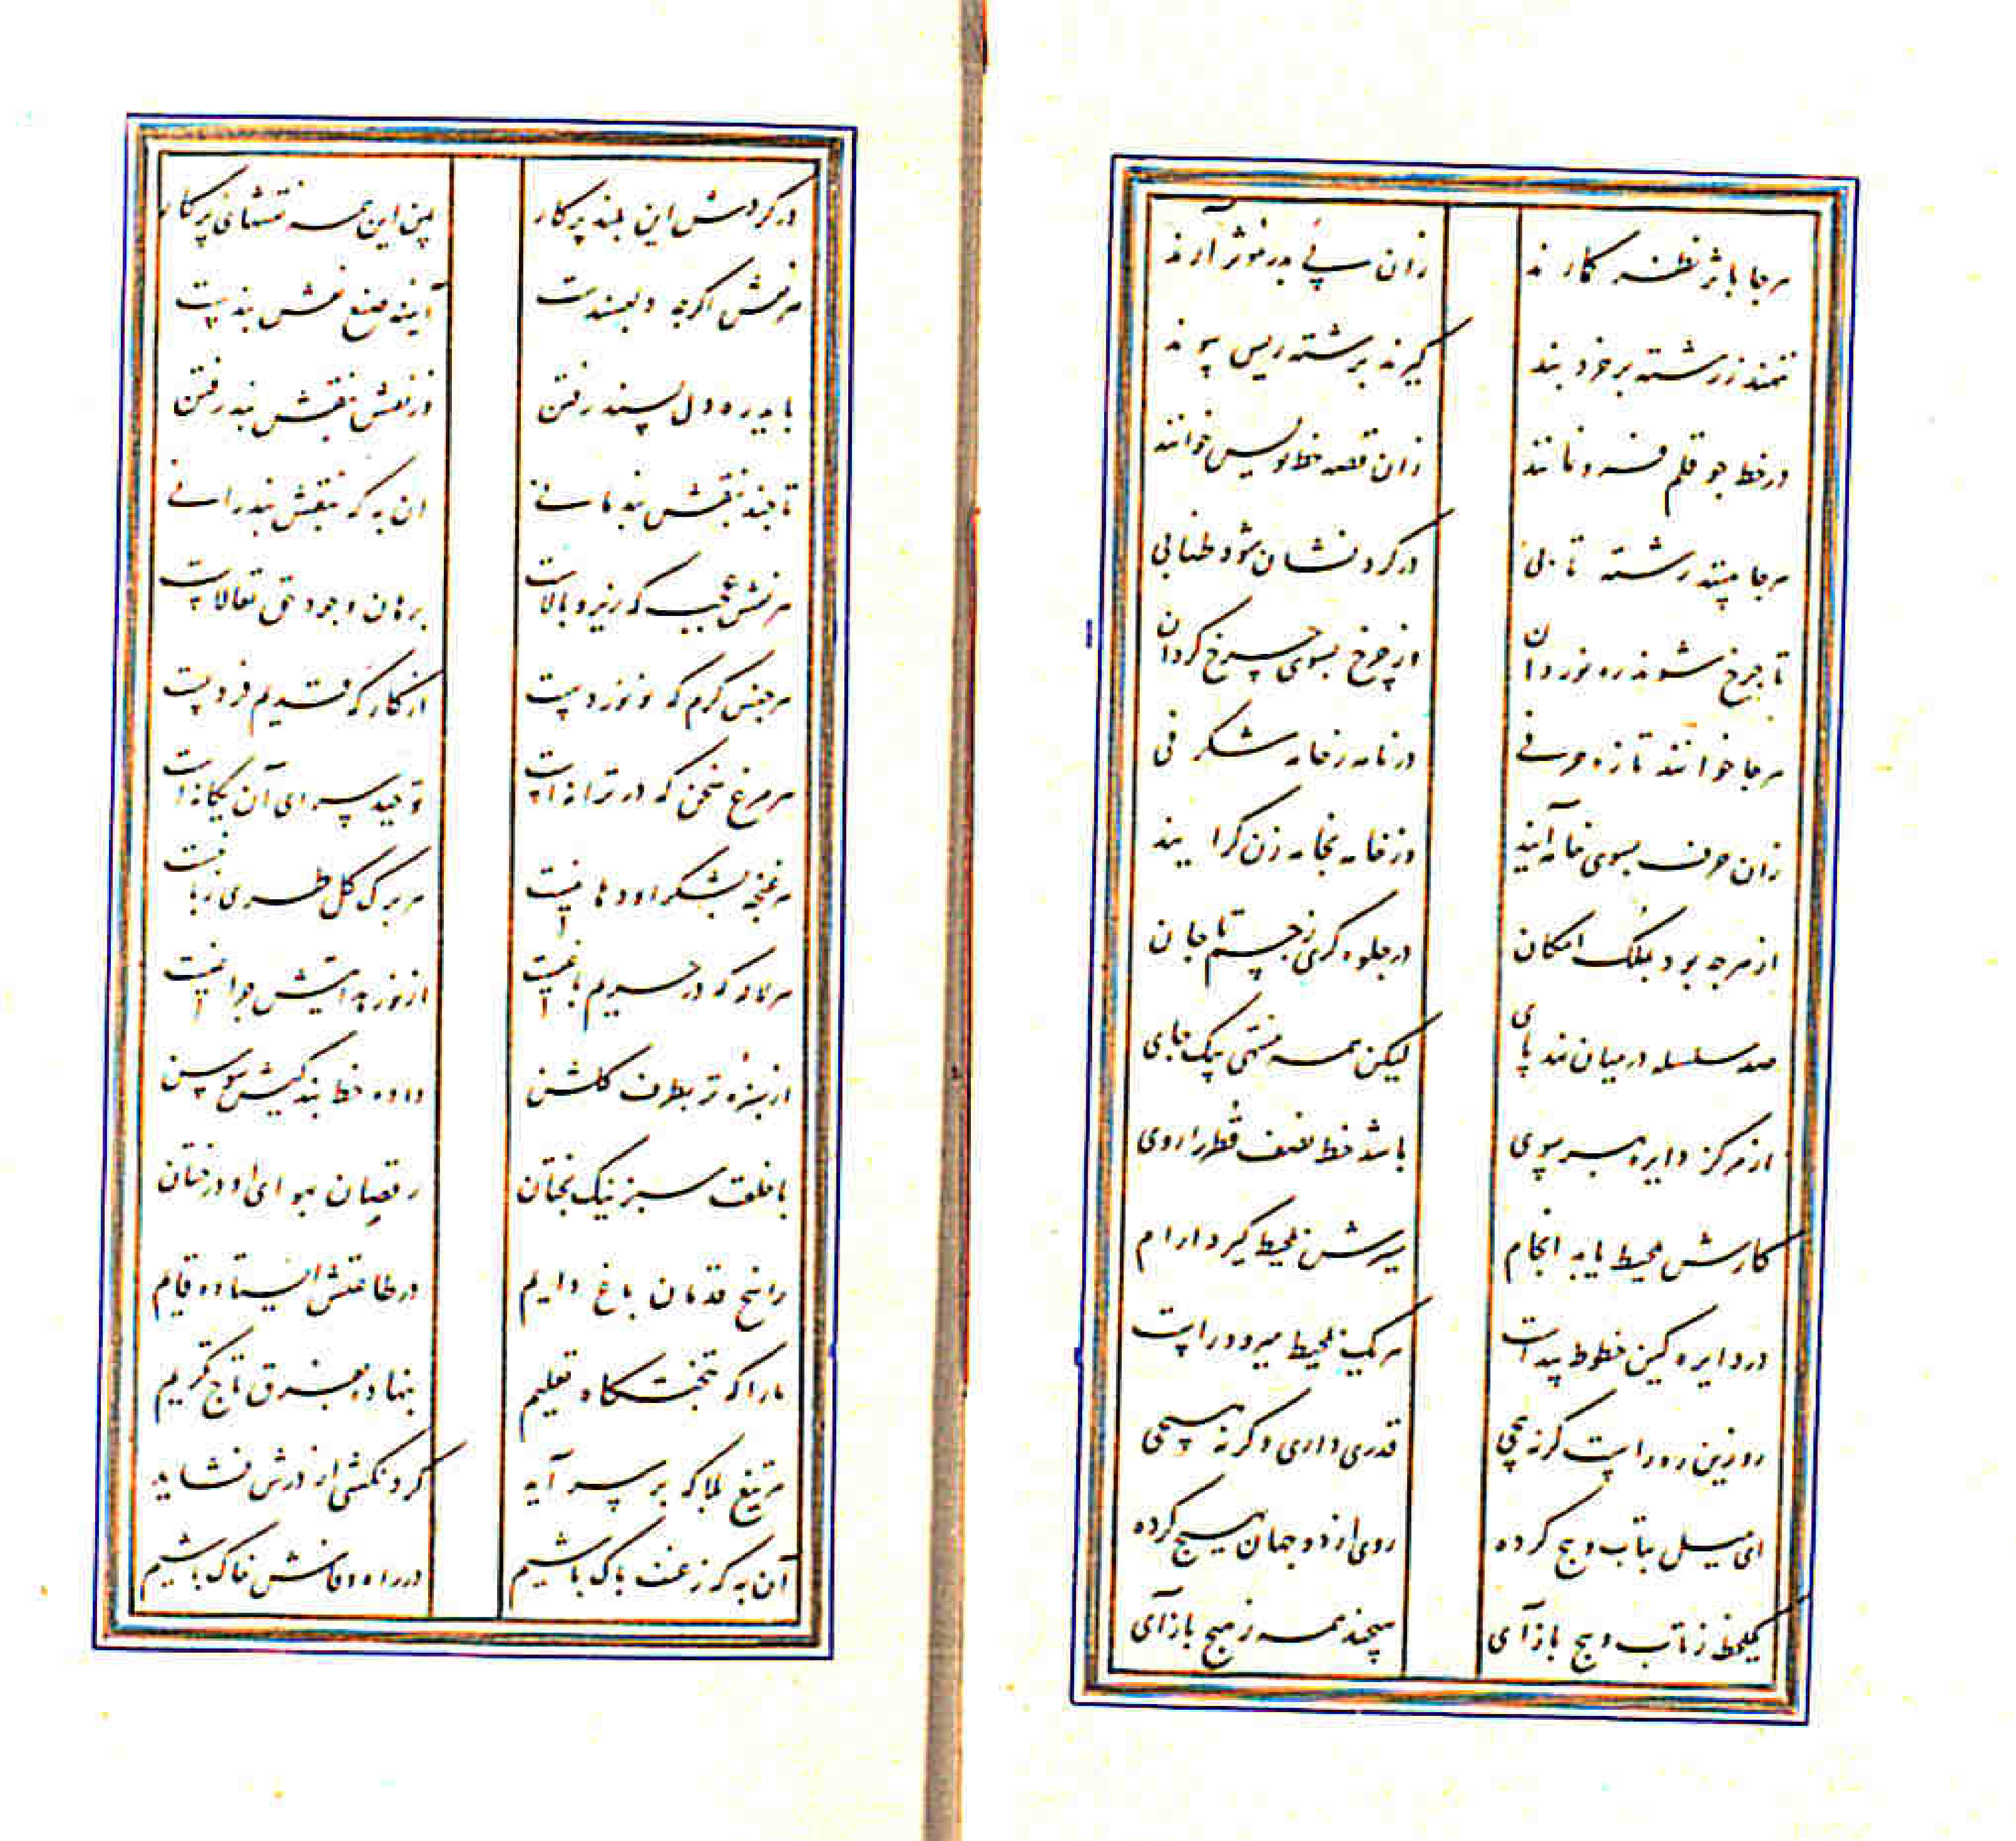 هرجا باثر نظر گمارند زان پی بدر مؤثر آرند
ننهند ز رشته بر خرد بند گیرند برشته ریس پیوند
در خط چو قلم فرو نمانند زان قصه خط نویس خوانند
هرجا بینند رشته تابی در گردنشان شود طنابی
تا چرخ شوند ره نوردان وز چرخ بسوی چرخ گردان
هرجا خوانند تازه حرفی در نامه ز خامه شگرفی
زان حرف بسوی خامه آیند وز خامه بخامه زن گرایند
از هرچه بود بملک امکان در جلوه گری ز جسم تا جان
صد سلسله در میان نهد پای لیکن همه منتهی بیک جای
از مرکز دایره بهر سوی باشد خط نصف قطر را روی
کارش بمحیط یابد انجام سیرش بمحیط گیرد آرام
در دایره کین خطوط پیداست هر یک بمحیط میرود راست
رو زین ره راست گر نه پیچی قدری داری وگرنه هیچی
ای میل بتاب و پیچ کرده روی از ده جهان بهیچ کرده
یکلحظه ز تاب و پیچ بازآی پیچند همه ز هیچ بازآی
در گردش این بلند پرگار بین این همه نقشهای پرکار
هر نقش اگرچه دلپسندست آینه صنع نقش بندست
باید ره دل پسند رفتن وز نقش بنقش بند رفتن
تا چند بنقش بند مانی آن به که بنقش بند رانی
هر نقش عجب که زیر و بالاست برهان وجود حق تعالاست
هر جنس کرم که از کارگه قدیم فردست
هر مرغ سخن که در ترانه است توحید سرای آن یگانه است
هر غنچه بشکر او دهانیست هر برگ گل طری زبانیست
هر لاله که در حریم باغیست از نور هدایتش چراغیست
از سبزه تر بطرف گلشن داده خط بندگیش سوسن
با خلعت سبز نیک بختان رقصان بهوای او درختان
راسخ قدمان باغ دایم در طاعتش ایستاده قایم
ما را که بتختگاه تعلیم بنهاد بفرق تاج تکریم
هر تیغ بلا که بر سر آید گردنکشی از درش نشاید
آن به که ز غیب پاک باشیم در راه وفاش خاک باشیم